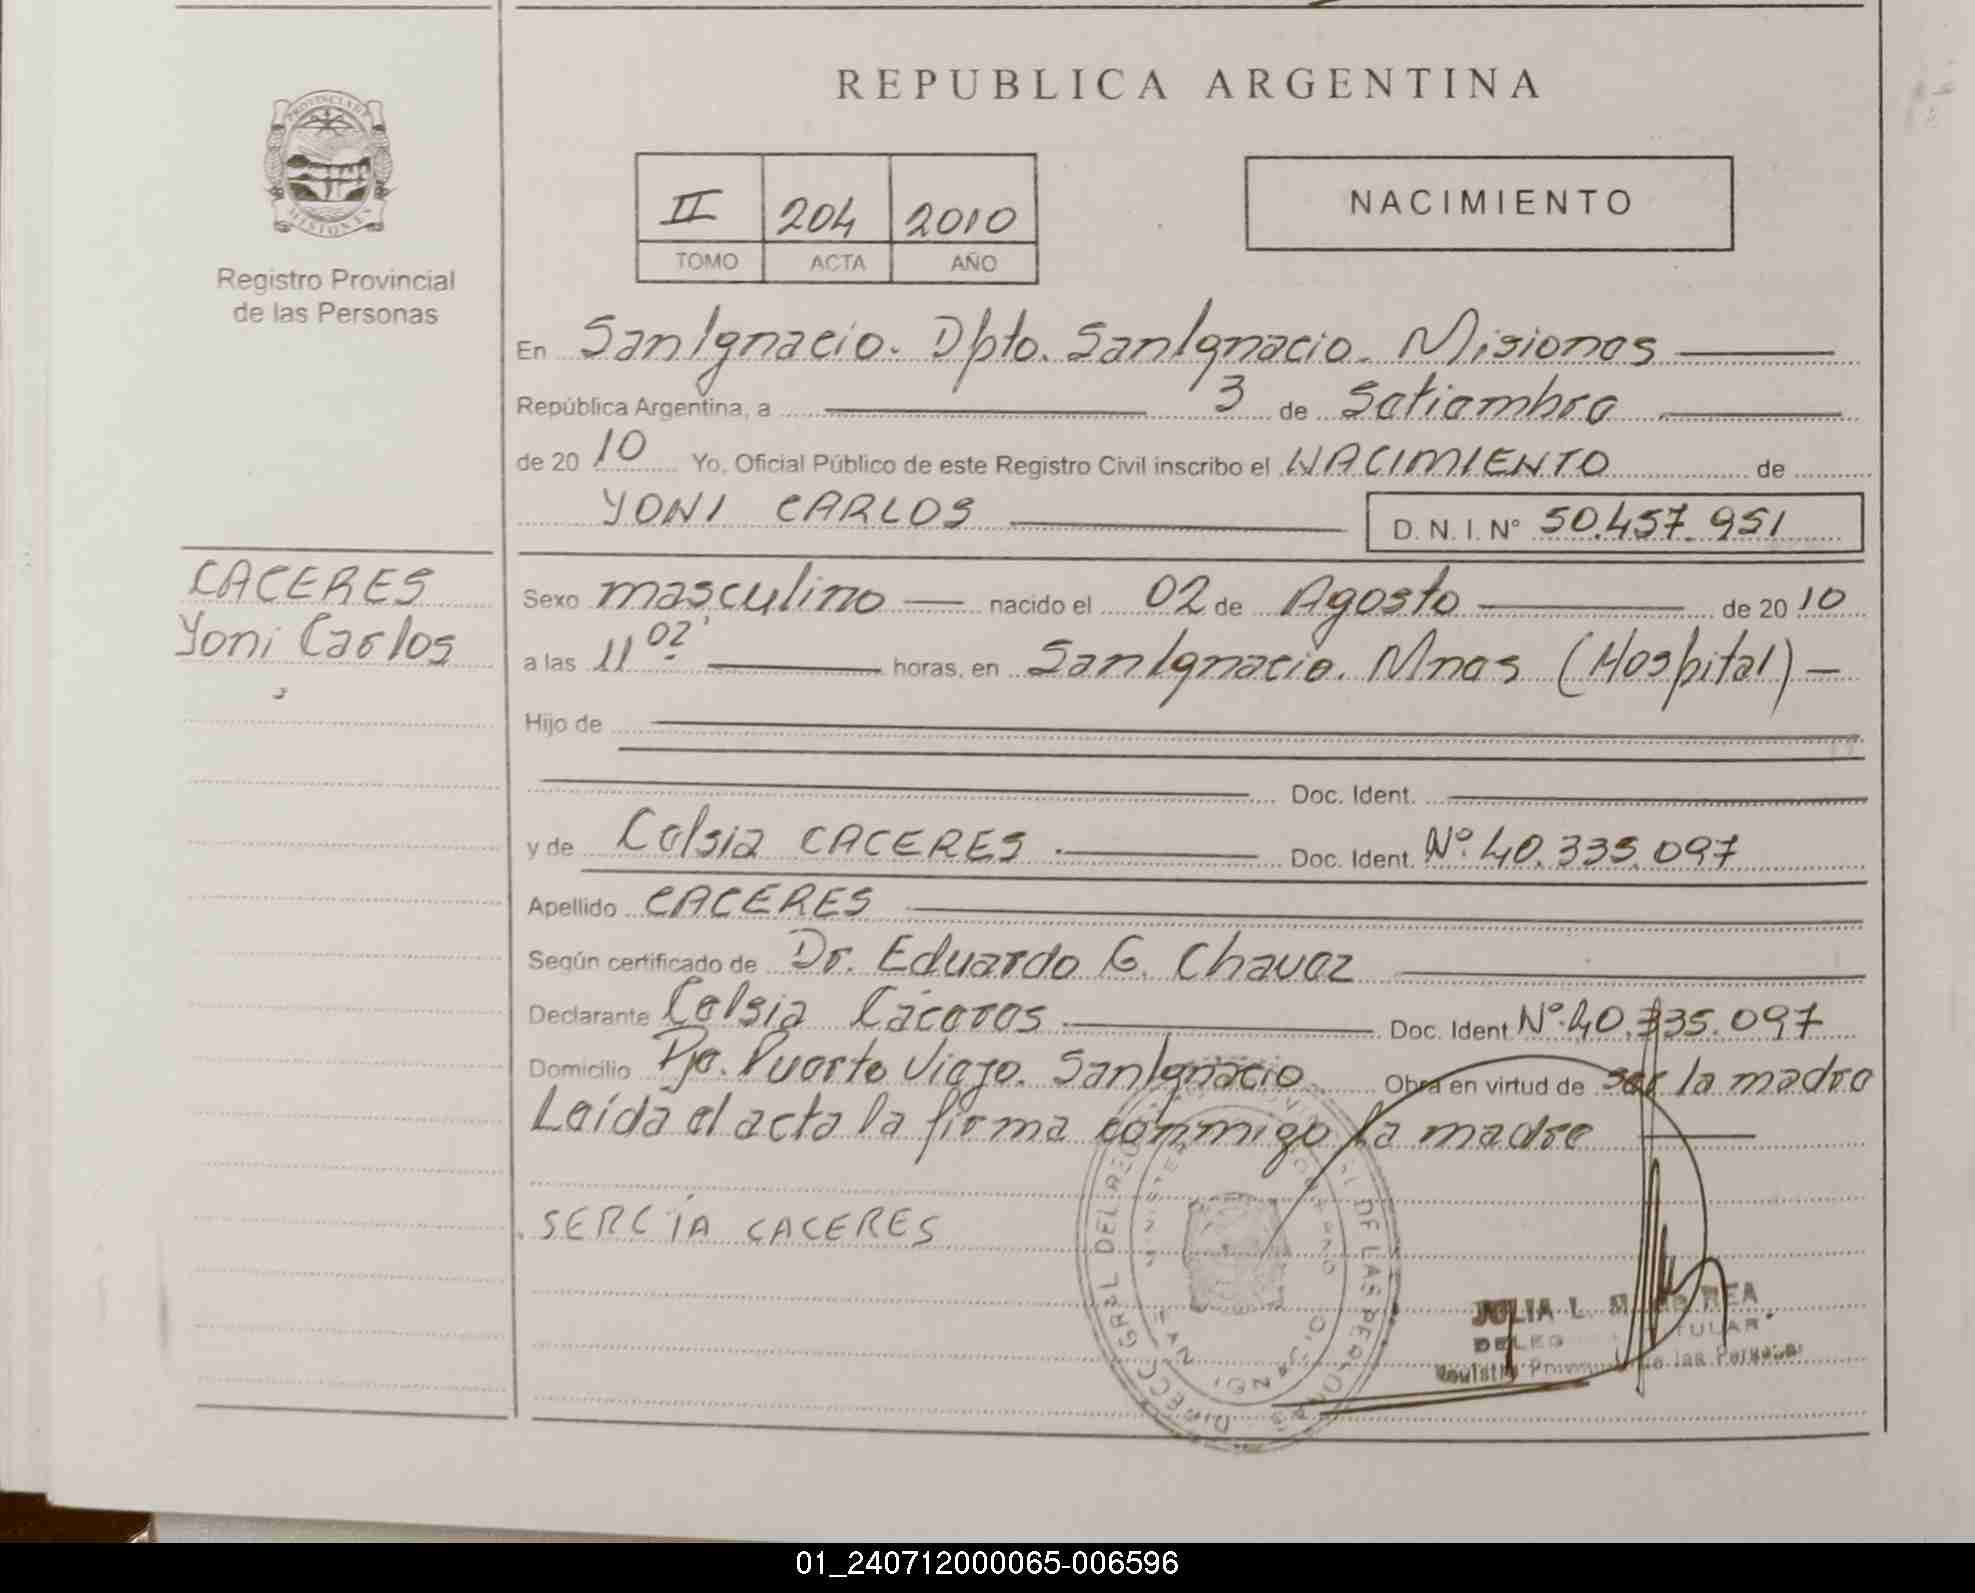 REPUBLICA ARGENTINA
PROVINCIA DE
MISIONES
Registro Provincial
de las Personas
II 204 2010
TOMO ACTA AÑO
NACIMIENTO
En San Ignacio. Dpto. San Ignacio. Misiones
República Argentina, a 3 de Setiembre
de 20 10 Yo, Oficial Público de este Registro Civil inscribo el NACIMIENTO de
YONI CARLOS D. N. I. N° 50.457.951
CACERES
Yoni Carlos
Sexo masculino nacido el 02 de Agosto de 20 10
a las 11 02' horas, en San Ignacio. Mnes (Hospital)
Hijo de
Doc. Ident.
y de Celsia CACERES Doc. Ident. Nº 40.335.097
Apellido CACERES
Según certificado de Dr. Eduardo G. Chavez
Declarante Celsia Cáceres Doc. Ident. Nº 40.335.097
Domicilio Pje. Puerto Viejo. San Ignacio Obra en virtud de ser la madre
Leída el acta la firma conmigo la madre
SERCIA CACERES
DIRECC. GRAL DEL REG. DE LAS PERSONAS
JULIA L.
Registro Provincial de las Personas
01_240712000065-006596